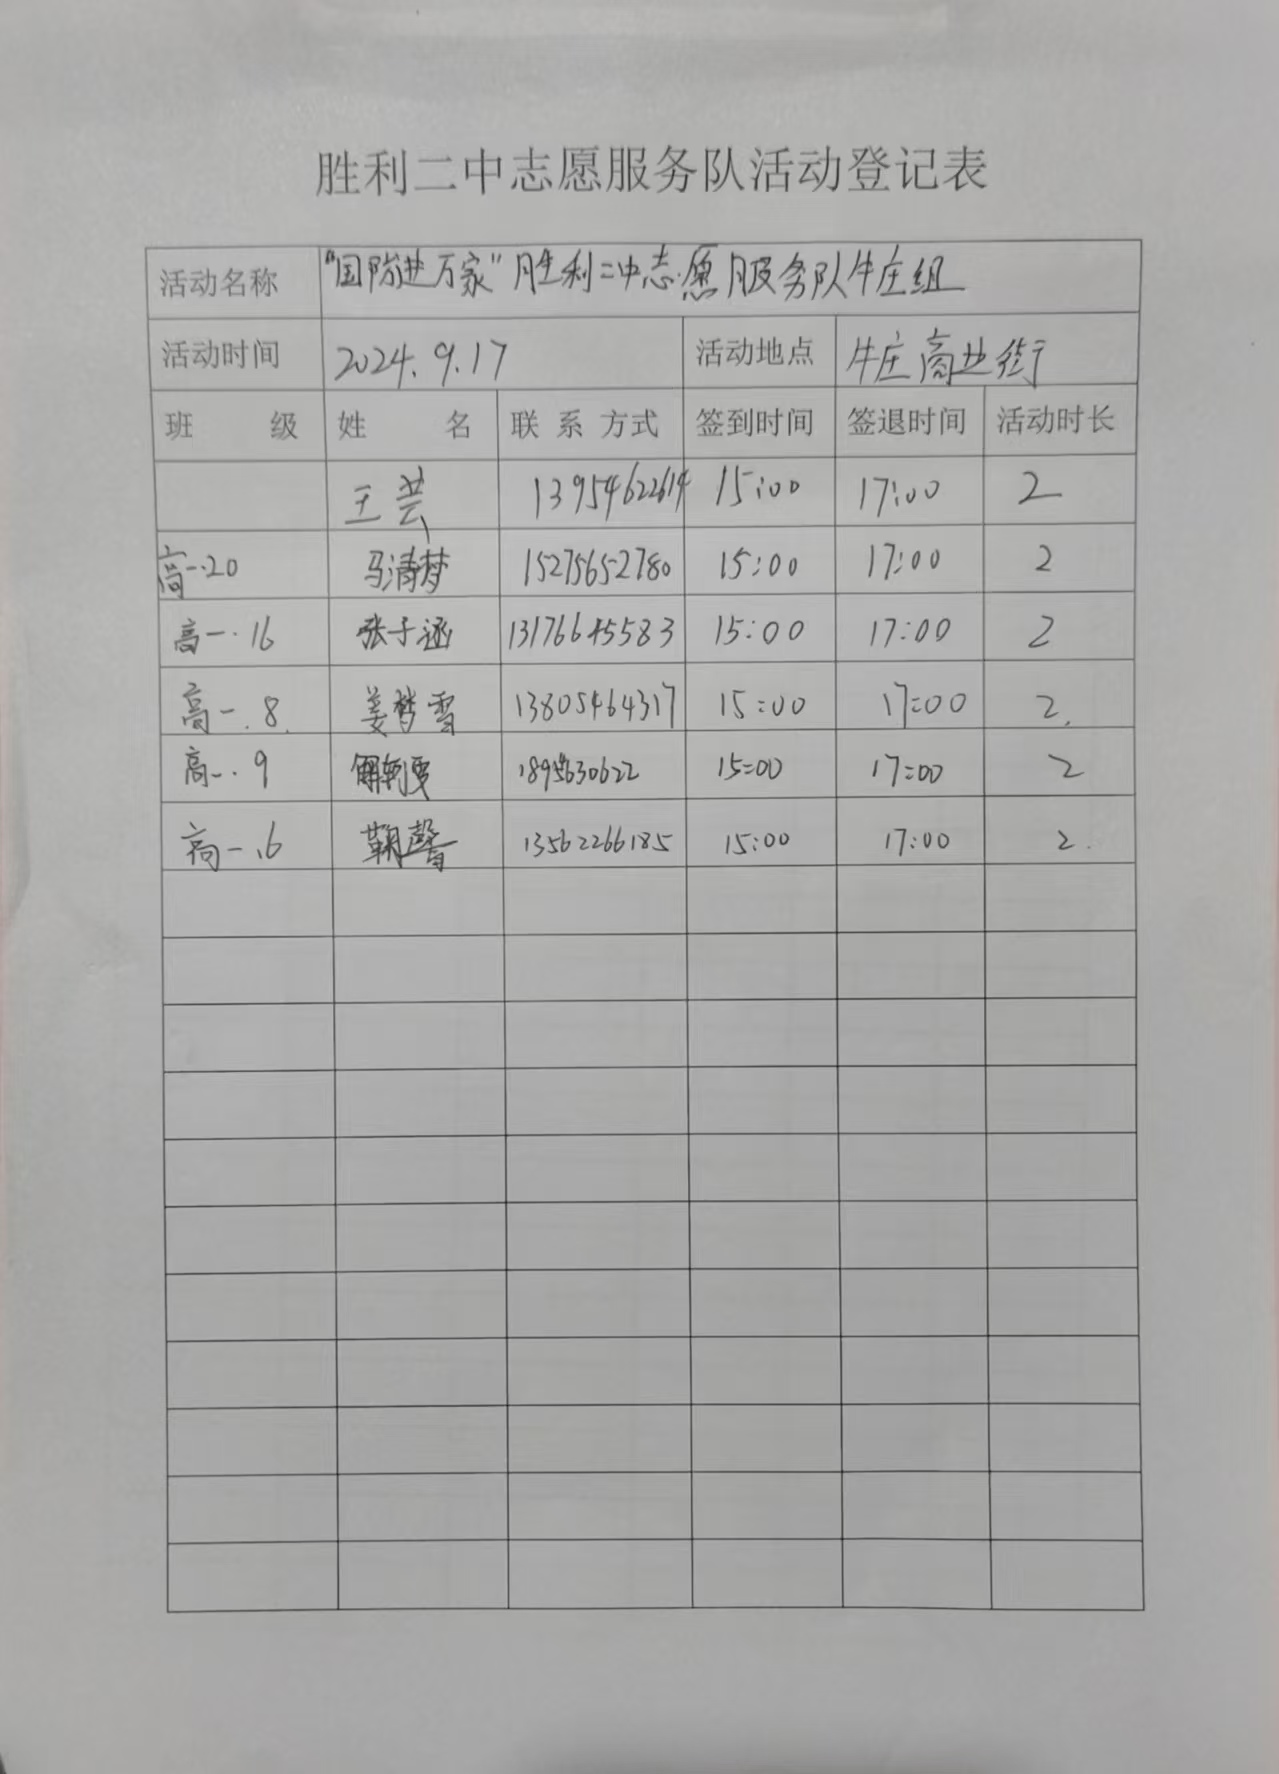 胜利二中志愿服务队活动登记表
活动名称 "国防进万家"胜利二中志愿服务队牛庄组
活动时间 2024.9.17 活动地点 牛庄商业街
班 级 姓 名 联系方式 签到时间 签退时间 活动时长
王芸 13954622614 15:00 17:00 2
高一.20 马清梦 15275652780 15:00 17:00 2
高一.16 张子涵 13176645583 15:00 17:00 2
高一.8. 姜梦雪 13805464317 15:00 17:00 2.
高一.9 15:00 17:00 2
高一.6 鞠馨 13562266185 15:00 17:00 2.